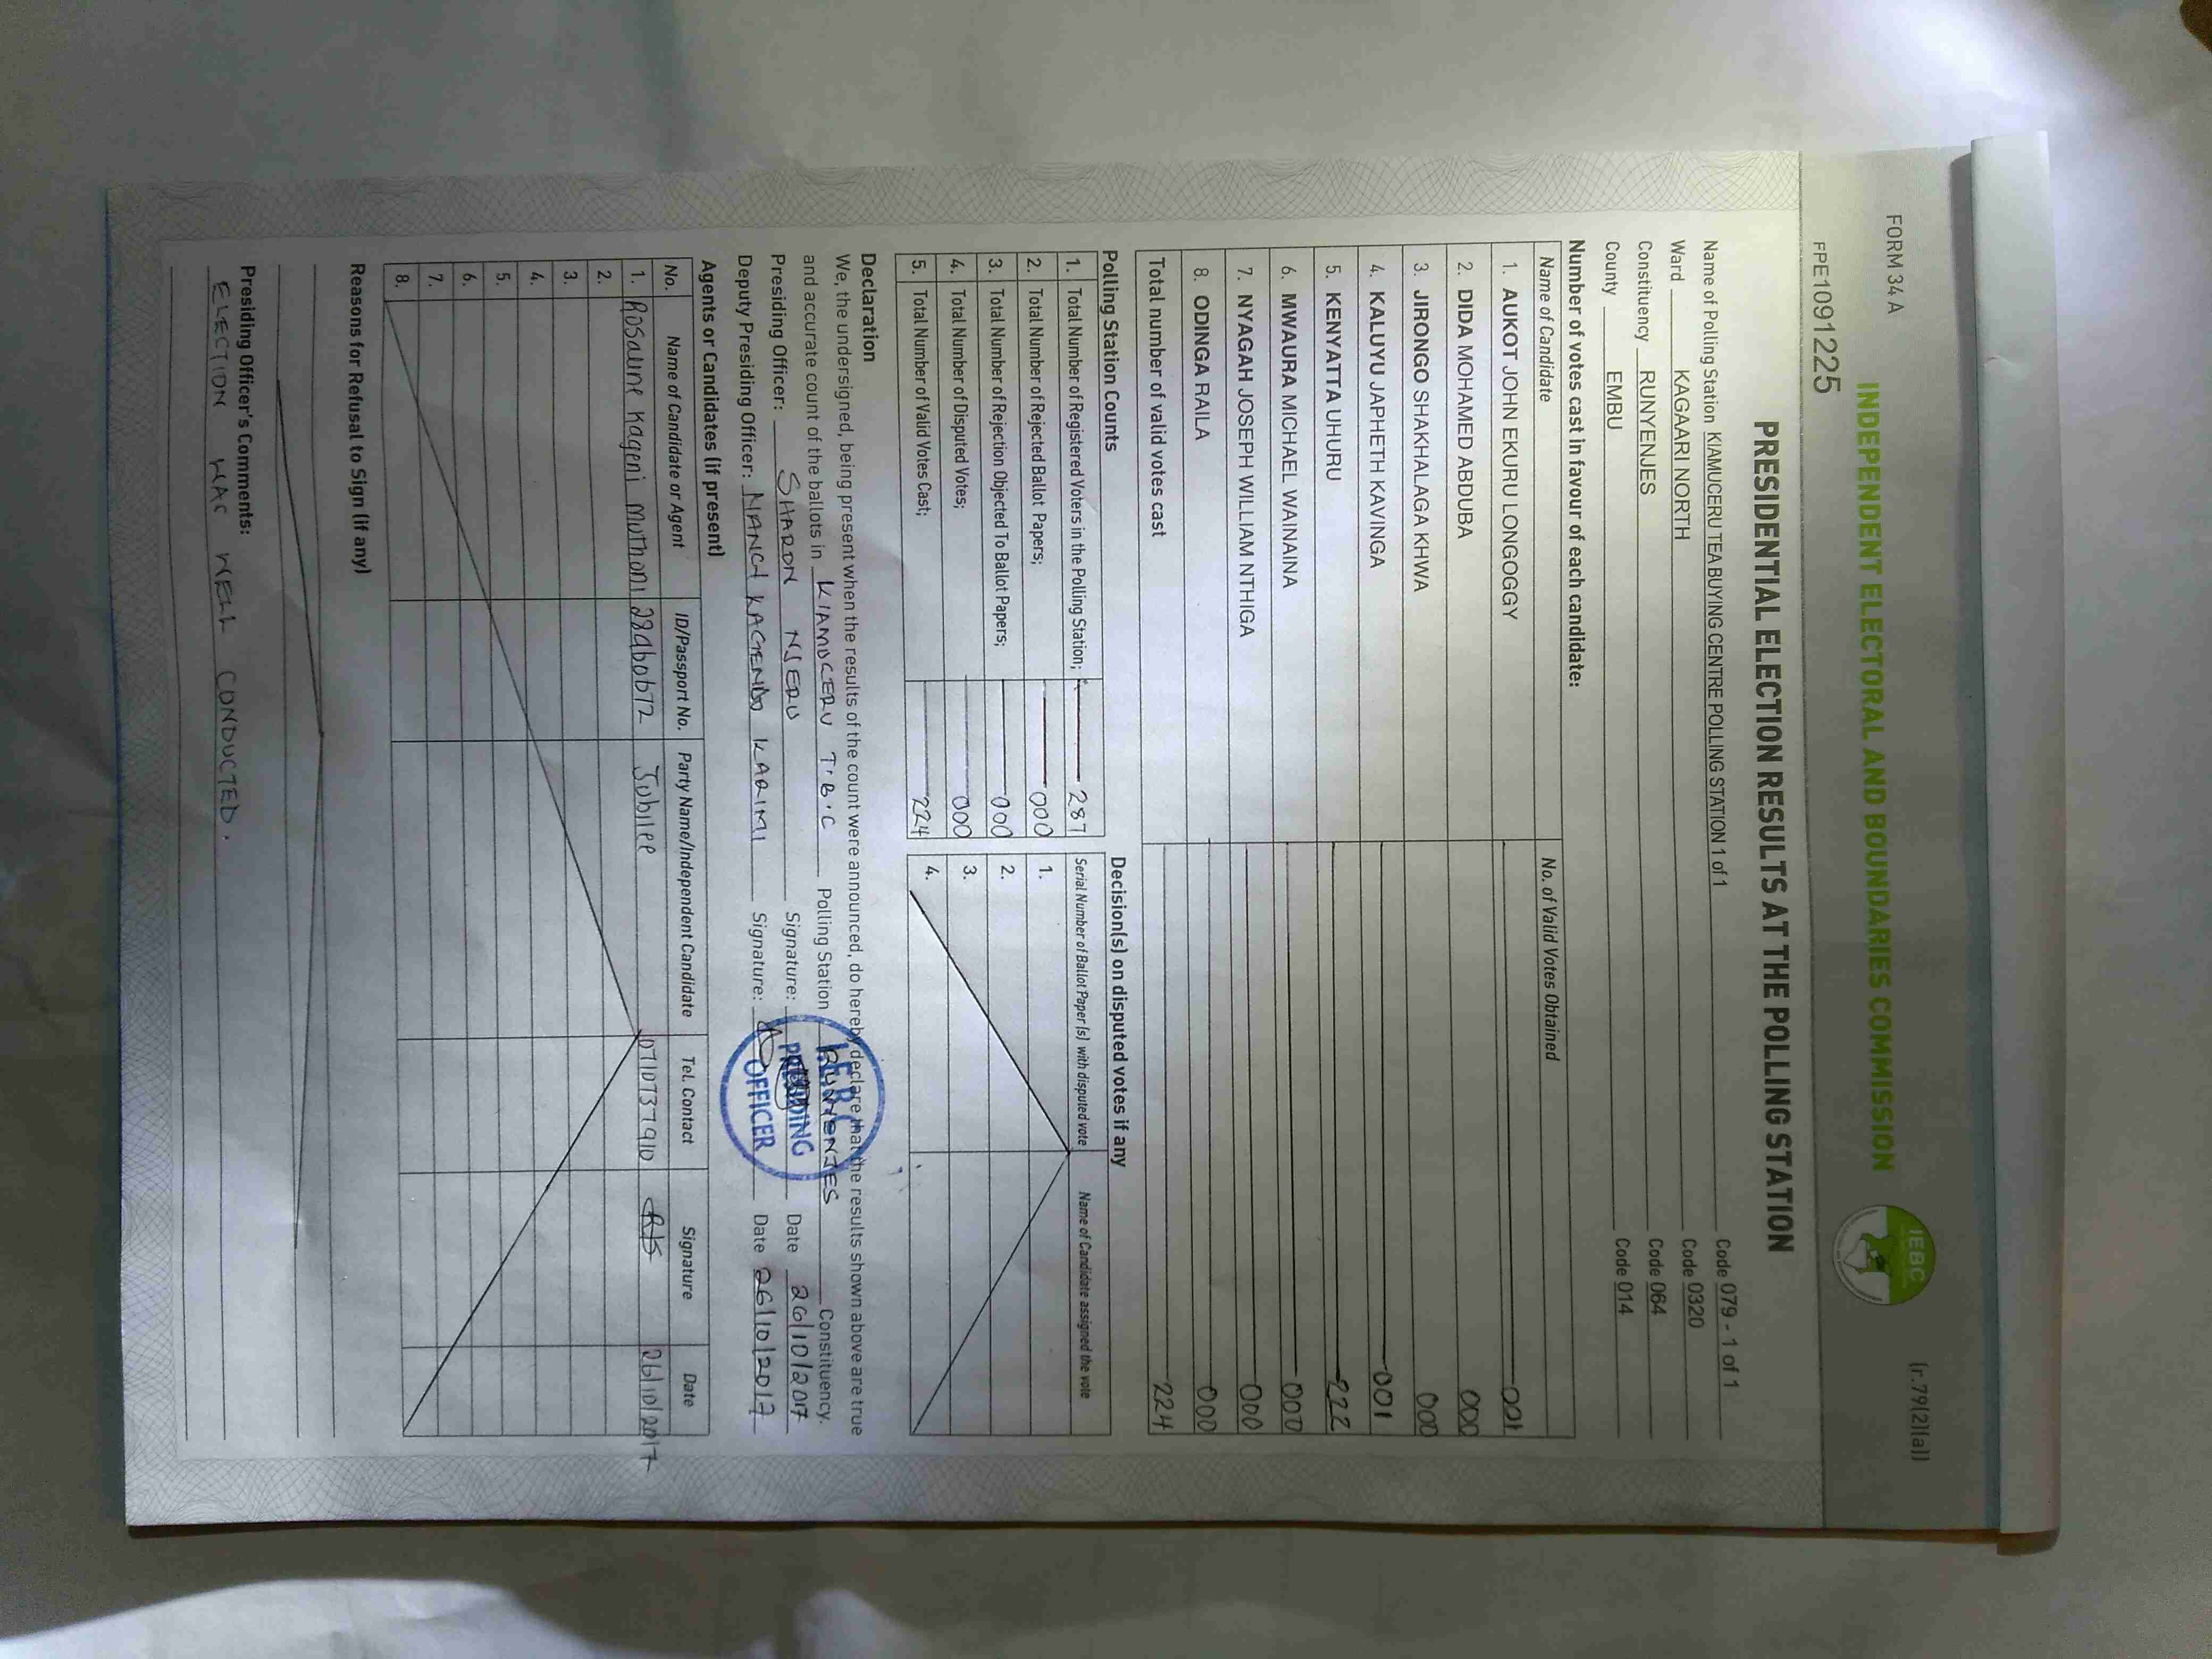 FORM 34 A
(r.79(2)(a))
INDEPENDENT ELECTORAL AND BOUNDARIES COMMISSION
IEBC
FPE1091225
PRESIDENTIAL ELECTION RESULTS AT THE POLLING STATION
Name of Polling Station KIAMUCERU TEA BUYING CENTRE POLLING STATION 1 of 1 Code 079 - 1 of 1
Ward KAGAARI NORTH Code 0320
Constituency RUNYENJES Code 064
County EMBU Code 014
Number of votes cast in favour of each candidate:
Name of Candidate No. of Valid Votes Obtained
1. AUKOT JOHN EKURU LONGOGGY 001
2. DIDA MOHAMED ABDUBA 000
3. JIRONGO SHAKHALAGA KHWA 000
4. KALUYU JAPHETH KAVINGA 001
5. KENYATTA UHURU 222
6. MWAURA MICHAEL WAINAINA 000
7. NYAGAH JOSEPH WILLIAM NTHIGA 000
8. ODINGA RAILA 000
Total number of valid votes cast 224
Polling Station Counts
1. Total Number of Registered Voters in the Polling Station; 287
2. Total Number of Rejected Ballot Papers; 000
3. Total Number of Rejection Objected To Ballot Papers; 000
4. Total Number of Disputed Votes; 000
5. Total Number of Valid Votes Cast; 224
Decision(s) on disputed votes if any
Serial Number of Ballot Paper (s) with disputed vote Name of Candidate assigned the vote
1.
2.
3.
4.
Declaration
We, the undersigned, being present when the results of the count were announced, do hereby declare that the results shown above are true
and accurate count of the ballots in KIAMUCERU T.B.C Polling Station RUNYENJES Constituency.
Presiding Officer: SHARON NJERU Signature: Date 26/10/2017
Deputy Presiding Officer: NANCY KAGENDO KARIMI Signature: Date 26/10/2017
I.E.B.C
PRESIDING
OFFICER
Agents or Candidates (if present)
No. Name of Candidate or Agent ID/Passport No. Party Name/Independent Candidate Tel. Contact Signature Date
1. Rosaline Kageni Muthoni Jubilee 0710737910 26/10/2017
2.
3.
4.
5.
6.
7.
8.
Reasons for Refusal to Sign (if any)
Presiding Officer's Comments:
ELECTION WAS WELL CONDUCTED.